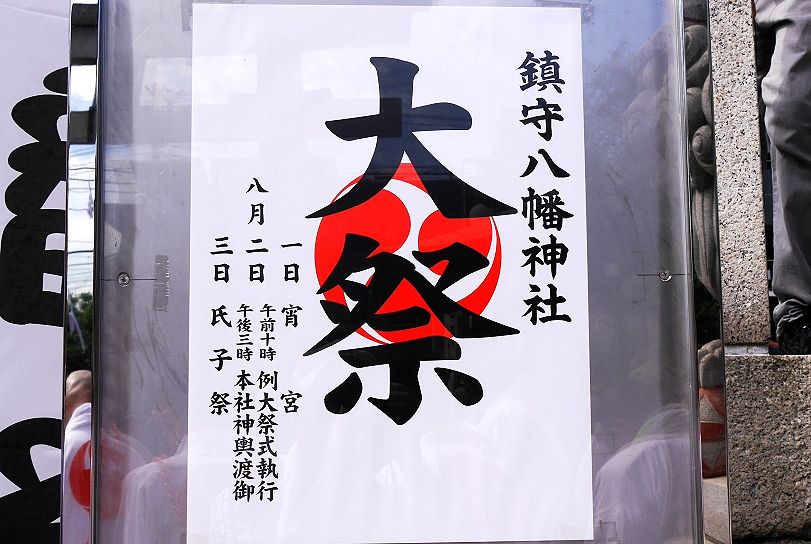 鎮守八幡神社
大祭
八月
一日 宵宮
二日 午前十時 例大祭式執行
午後三時 本社神輿渡御
三日 氏子祭